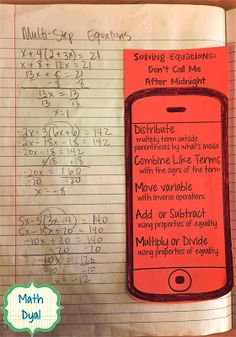 Multi-Step Equations
x + 4(2+3x) = 21
x + 8 + 12x = 21
13x + 8 = 21
13x = 13
13 13
x = 1
-2x - 3(6x+6) = 142
-2x - 18x - 18 = 142
-20x - 18 = 142
-20x = 160
-20 -20
x = -8
5x - 5(3x-4) = 140
5x - 15x + 20 = 140
-10x + 20 = 140
-10x = 120
-10 -10
x = -12
Solving Equations:
Don't Call Me
After Midnight
Distribute
multiply term outside
parentheses by what's inside
Combine Like Terms
with the signs of the term
Move variable
with inverse operations
Add or Subtract
using properties of equality
Multiply or Divide
using properties of equality
Math
Dyal